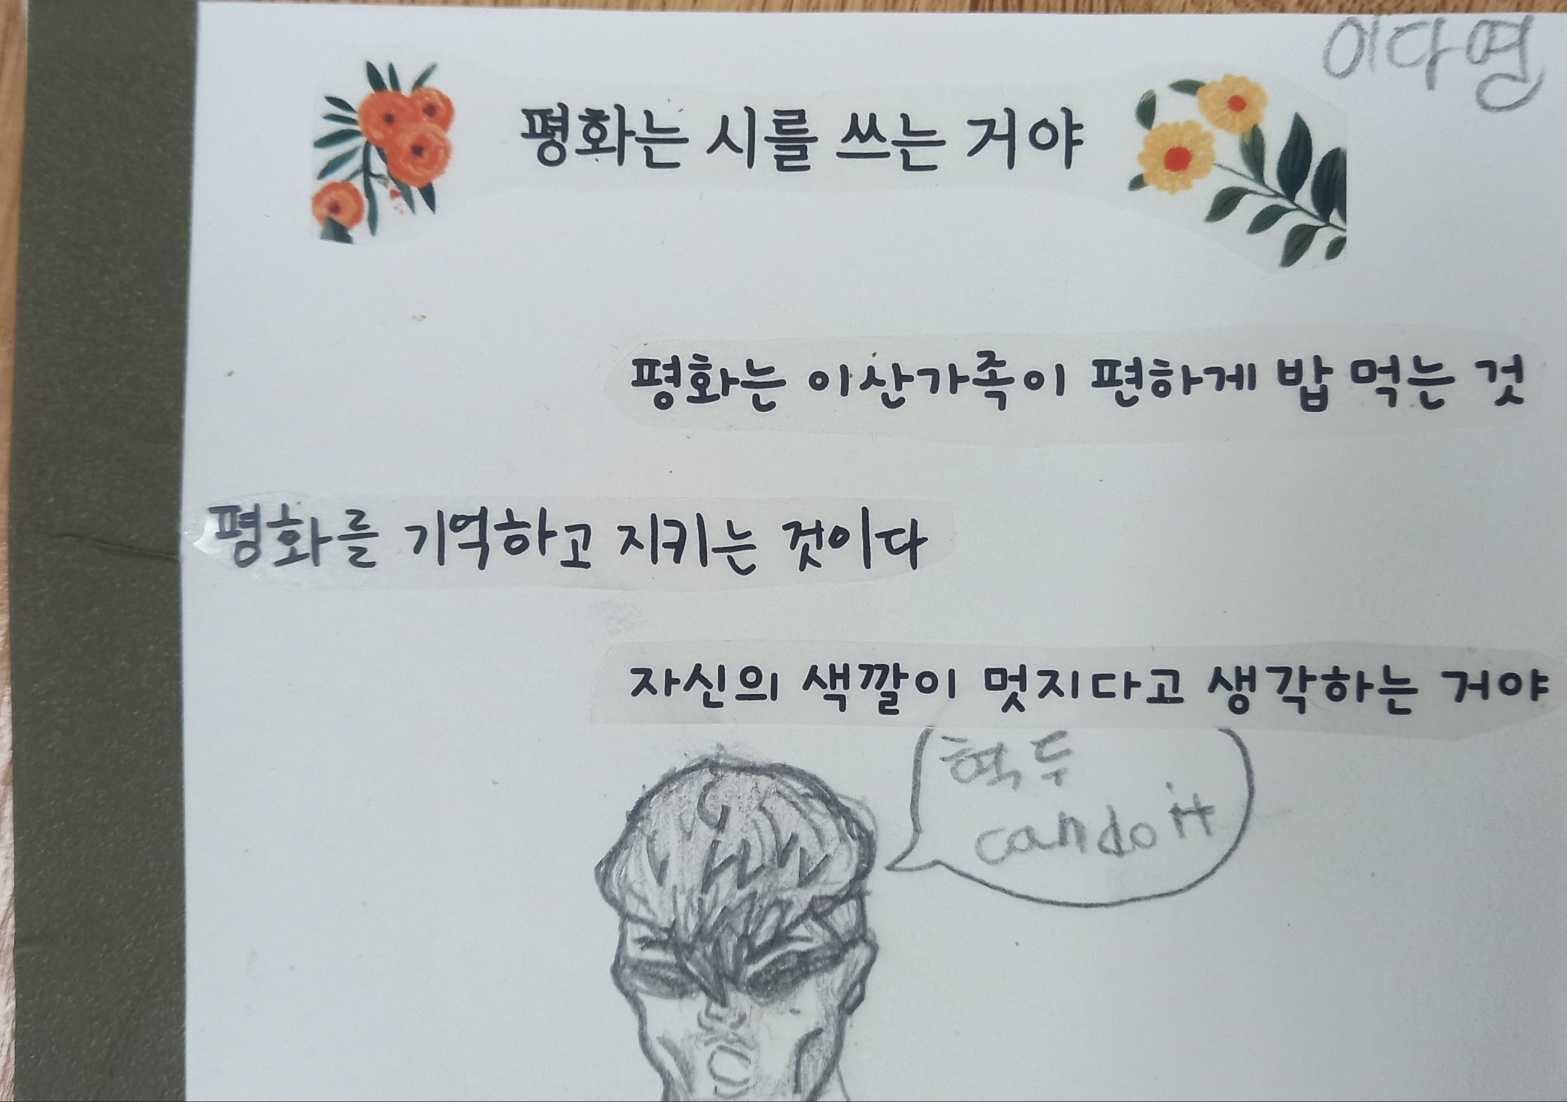 이다영
평화는 시를 쓰는 거야
평화는 이산가족이 편하게 밥 먹는 것
평화를 기억하고 지키는 것이다
자신의 색깔이 멋지다고 생각하는 거야
혁두
can do it